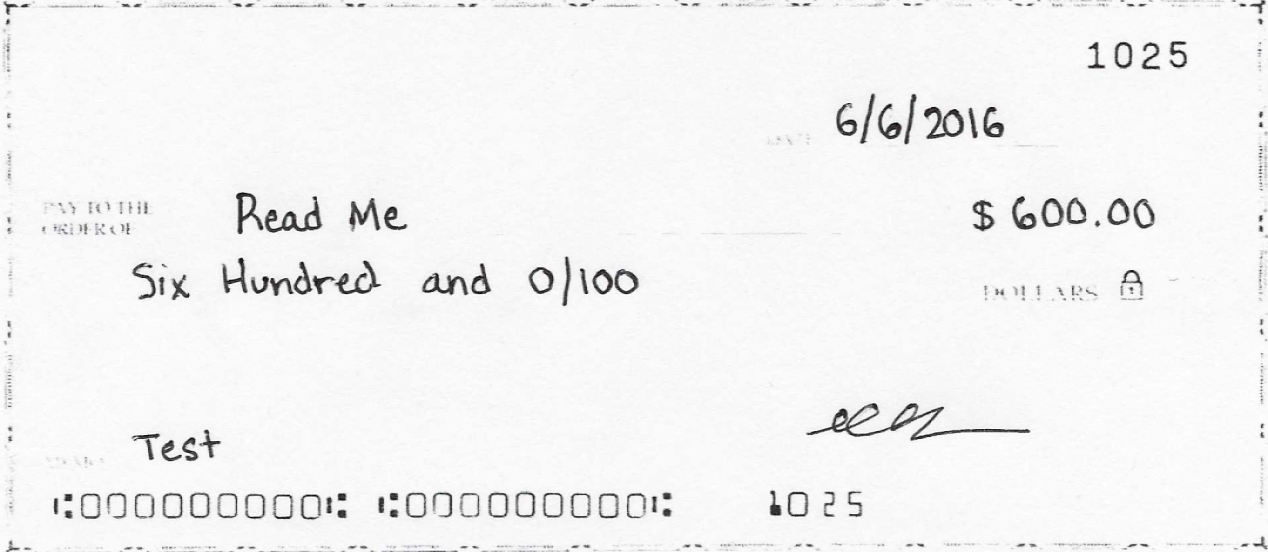 1025
DATE 6/6/2016
PAY TO THE
ORDER OF Read Me $ 600.00
Six Hundred and 0/100 DOLLARS
Test
⑆000000000⑆ ⑆000000000⑆ 1025